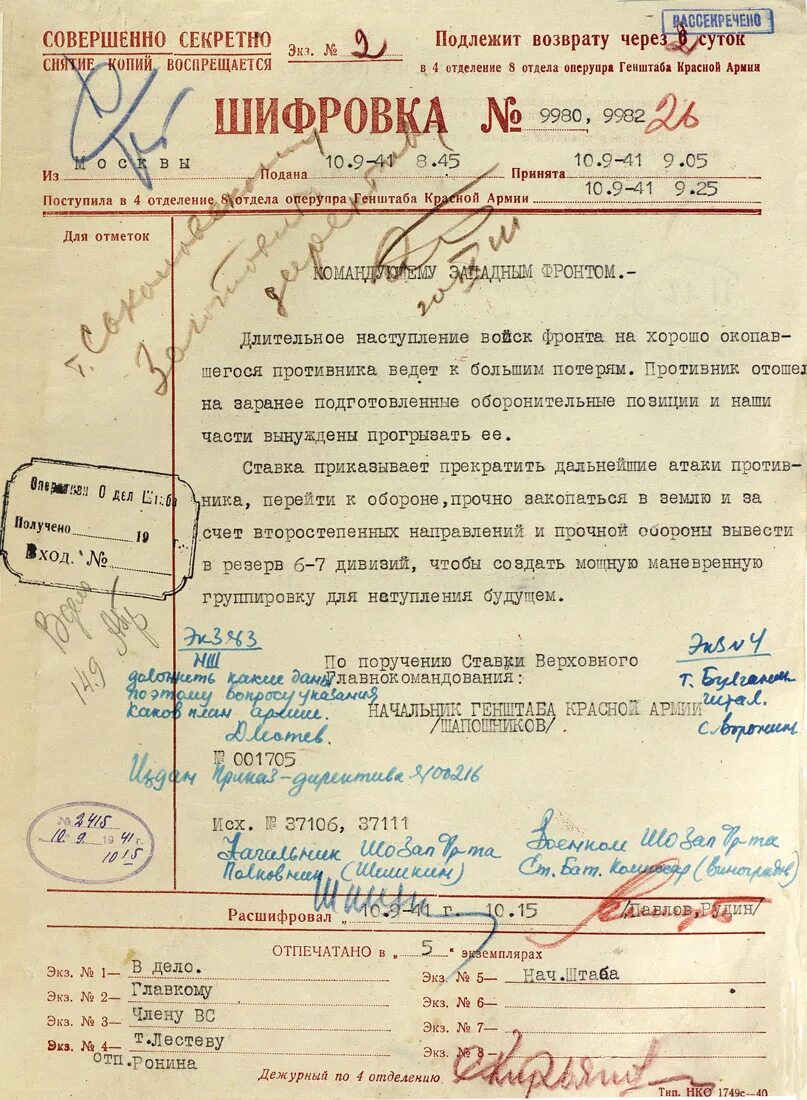 РАССЕКРЕЧЕНО
СОВЕРШЕННО СЕКРЕТНО
СНЯТИЕ КОПИЙ ВОСПРЕЩАЕТСЯ
Экз. № 2
Подлежит возврату через 2 суток
в 4 отделение 8 отдела оперупра Генштаба Красной Армии
ШИФРОВКА № 9980, 9982 26
Из Москвы Подана 10.9-41 8.45 Принята 10.9-41 9.05
Поступила в 4 отделение 8 отдела оперупра Генштаба Красной Армии 10.9-41 9.25
Для отметок
т. Соколовскому
директиву
КОМАНДУЮЩЕМУ ЗАПАДНЫМ ФРОНТОМ.-
Длительное наступление войск фронта на хорошо окопав-
шегося противника ведет к большим потерям. Противник отошел
на заранее подготовленные оборонительные позиции и наши
части вынуждены прогрызать ее.
Ставка приказывает прекратить дальнейшие атаки против-
ника, перейти к обороне,прочно закопаться в землю и за
счет второстепенных направлений и прочной обороны вывести
в резерв 6-7 дивизий, чтобы создать мощную маневренную
группировку для наступления будущем.
Оперативн О дел Штаба
Получено 19 г.
Вход. №
В дело
14.9
Экз №3
НШ
доложить какие даны
по этому вопросу указания
каков план армии.
Д Лестев.
По поручению Ставки Верховного
Главнокомандования:
НАЧАЛЬНИК ГЕНШТАБА КРАСНОЙ АРМИИ
/ШАПОШНИКОВ/
Экз №4
т. Булганин
читал.
С. Воронин
№ 001705
Издан Приказ-директива №00216
№ 2415
10.9 1941 г.
10 15
Исх. № 37106, 37111
Начальник ШО Зап Фр-та
Полковник (Шишкин)
Военком ШО Зап Фр-та
Ст. Бат. Комиссар (Виноградов)
Расшифровал 10.9-41 г. 10.15 /Павлов,Рудин/
ОТПЕЧАТАНО в „ 5 " экземплярах
Экз. № 1— В дело.
Экз. № 2— Главкому
Экз. № 3— Члену ВС
Экз. № 4— т.Лестеву
отп.Ронина
Экз. № 5— Нач.Штаба
Экз. № 6—
Экз. № 7—
Экз. № 8—
Дежурный по 4 отделению
Тип. НКО 1749с—40